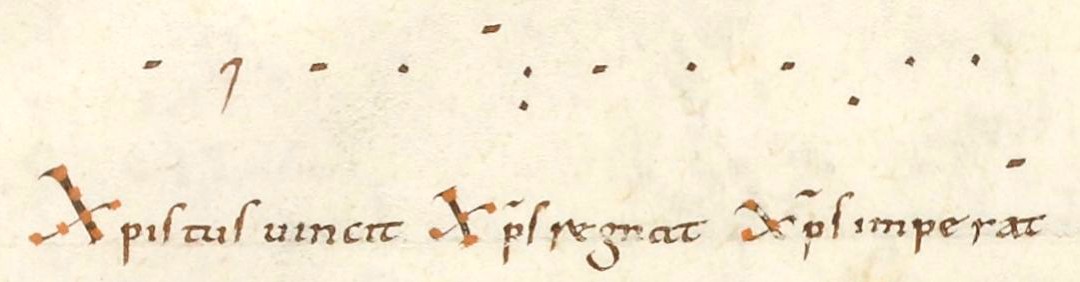 Xpistus uincit Xp̄s regnat Xp̄s imperat